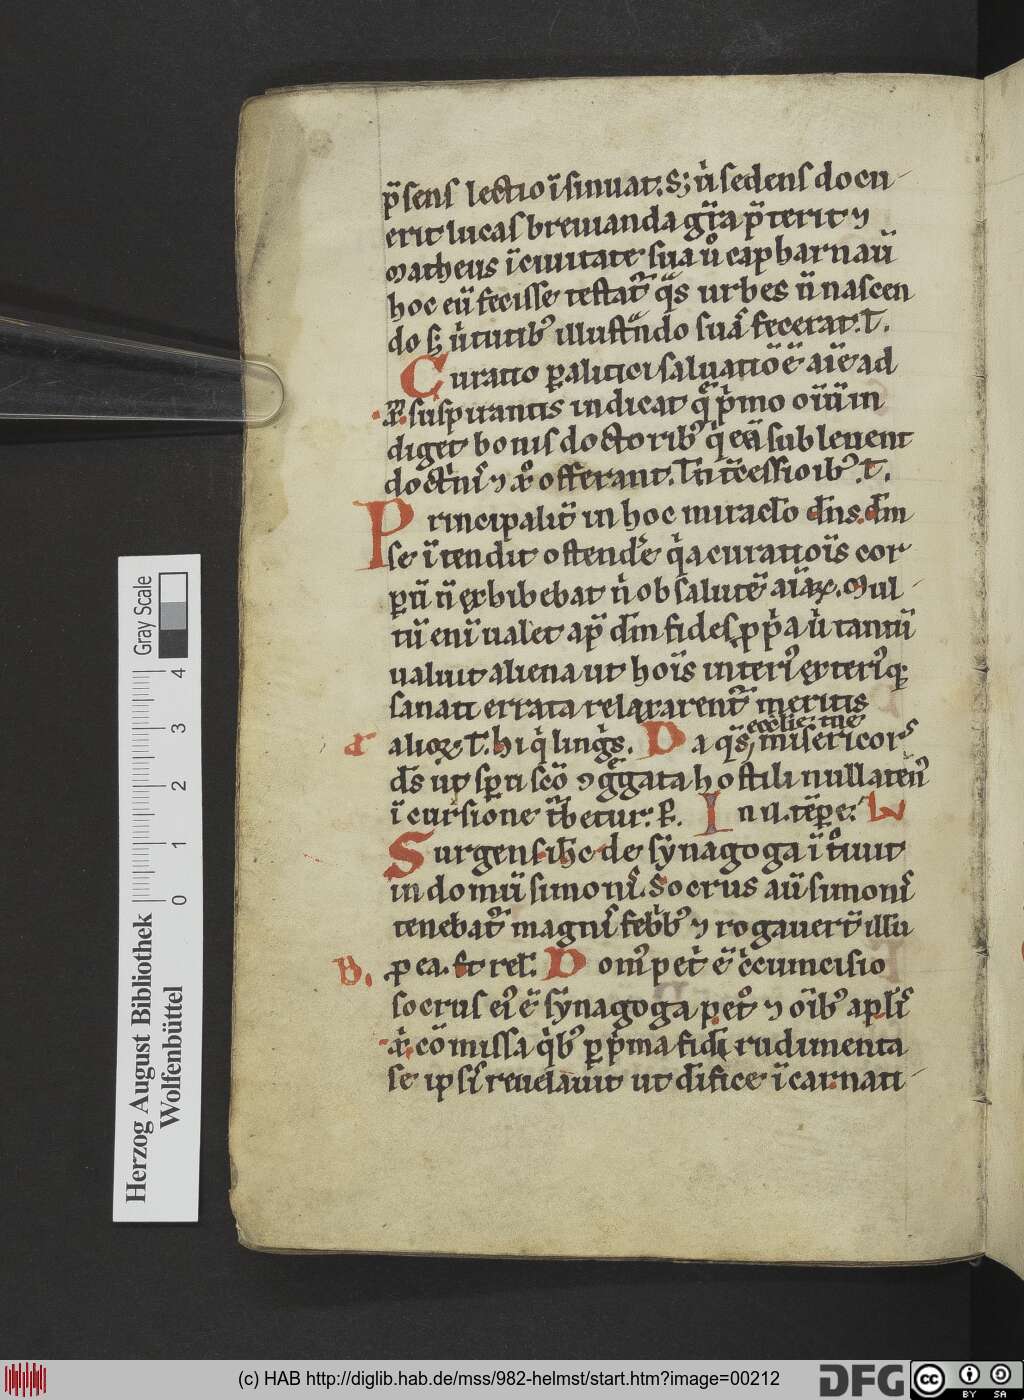 p̄sens lectio ī sinuat. S; ů sedens docu
erit lucas breuianda gr̄a p̄terit ⁊
Matheus ī ciuitate sua ů capharnaū
hoc eū fecisse testat᷑ q̄s urbes n̄ nascen
do s; ů tutibꝰ illust̄ndo suā fecerat. T̄.
Curatio ꝑalitici saluatiōē aīe ad
x̄. suspirantis indicat q̄ p̍mo oīū in
diget bonis doctoribꝰ q̍ eā subleuent
doct̍nis ⁊ xͦ offerant. int̄cessioibꝰ. T̄.
Principalit̄ in hoc miraclo dn̄s. dm̄
se ī tendit ostendē q̍a curatiōīs cor
ꝑū n̄ exhibebat n̍ ob salutē aīaꝝ. Mul
tū enī ualet ap̄ dm̄ fides ꝓp̍a ů tantū
ualuit aliena ut hoīs interi᷒ exteri᷒q;
sanati errata relaxarent᷑ meritis
alioꝝ. T̄. hi q̍ lingȝs. Da q̄s ecclie tue misericors
ds̄ ut sp̄u scō ⁊ggata hostili nullaten᷒
ī cursione t̄betur: P̄. In il. tēpe.
Surgens ih̄c de synagoga ī tͦiuit
in domū simonis. Socrus aū simonis
tenebat᷑ magnis febbꝰ ⁊ rogauert̄ illū
ꝓ ea. Et rel̄. Dom᷒ pet̍ ē c̍cumcisio
socrus ei᷒ ē synagoga petͦ ⁊ oībꝰ aplis
x̍. cōmissa q̍bꝰ ꝑ p̍ma fidi rudimenta
se ipsis reuelauit ut d̄ifice ī carnati
Herzog August Bibliothek
Wolfenbüttel
0 1 2 3 4
Gray Scale
(c) HAB http://diglib.hab.de/mss/982-helmst/start.htm?image=00212
DFG
cc
BY SA